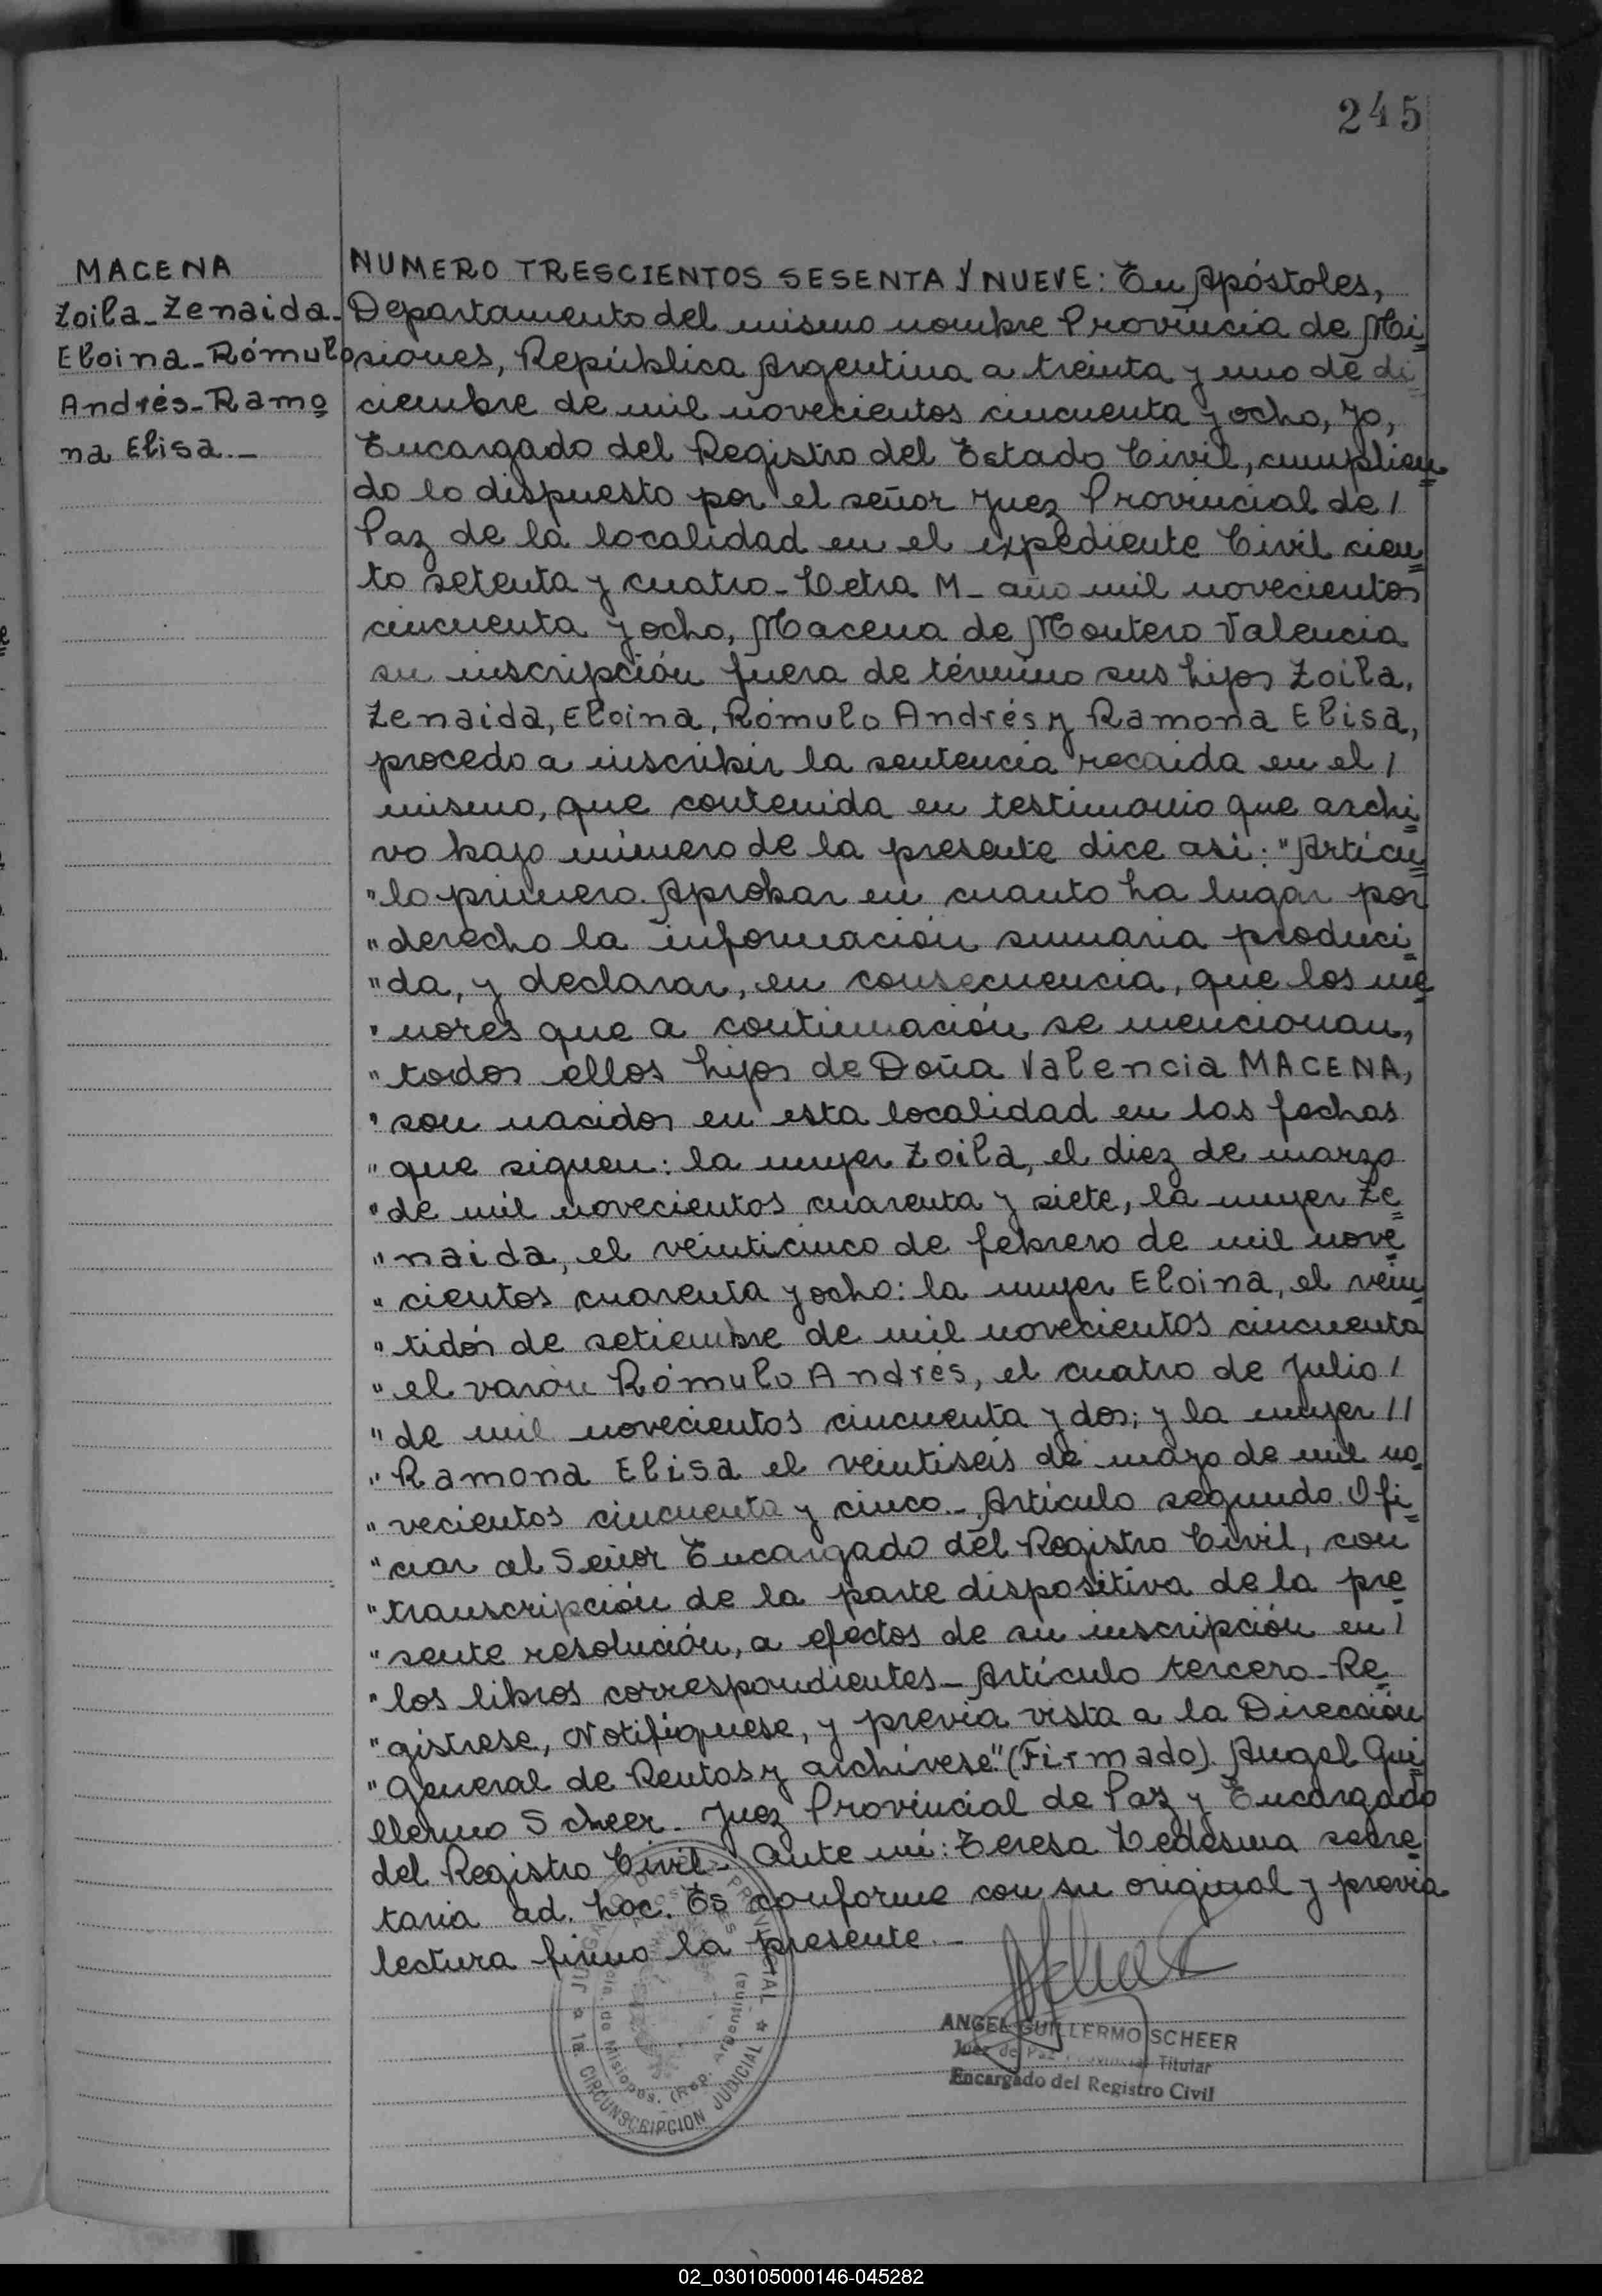 245
MACENA
Zoila-Zenaida-
Eloina-Rómulo
Andrés-Ramo
na Elisa.-
NUMERO TRESCIENTOS SESENTA Y NUEVE: En Apóstoles,
Departamento del mismo nombre Provincia de Mi
siones, República Argentina a treinta y uno de di
ciembre de mil novecientos cincuenta y ocho, Yo,
Encargado del Registro del Estado Civil, cumplien
do lo dispuesto por el señor Juez Provincial de /
Paz de la localidad en el expediente Civil cien
to setenta y cuatro- Letra M- año mil novecientos
cincuenta y ocho, Macena de Montero Valencia
su inscripción fuera de término sus hijos Zoila,
Zenaida, Eloina, Rómulo Andrés y Ramona Elisa,
procedo a inscribir la sentencia recaida en el /
mismo, que contenida en testimonio que archi
vo bajo número de la presente dice asi: "Artícu
"lo primero. Aprobar en cuanto ha lugar por
"derecho la información sumaria produci
"da, y declarar, en consecuencia, que los me
"nores que a continuación se mencionan,
"todos ellos hijos de Doña Valencia MACENA,
"son nacidos en esta localidad en las fechas
"que siguen: la mujer Zoila, el diez de marzo
"de mil novecientos cuarenta y siete, la mujer Ze
"naida, el veinticinco de febrero de mil nove
"cientos cuarenta y ocho: la mujer Eloina, el vein
"tidós de setiembre de mil novecientos cincuenta
"el varón Rómulo Andrés, el cuatro de Julio /
"de mil novecientos cincuenta y dos; y la mujer //
"Ramona Elisa el veintiseis de mazo de mil no
"vecientos cincuenta y cinco.- Artículo segundo. Ofi
"ciar al Señor Encargado del Registro Civil, con
"transcripción de la parte dispositiva de la pre
"sente resolución, a efectos de su inscripción en /
"los libros correspondientes- Artículo tercero- Re
"gistrese, Notifíquese, y previa vista a la Dirección
"General de Rentas y archívese" (Firmado). Angel Gui
llermo Scheer- Juez Provincial de Paz y Encargado
del Registro Civil- Ante mi: Teresa Ledesma secre
taria ad. hoc. Es conforme con su original y previa
lectura firmo la presente.-
JUZGADO PROVINCIAL
1a. CIRCUNSCRIPCION JUDICIAL
de Misiones. (Rep. Argentina)
ANGEL GUILLERMO SCHEER
Juez de Paz Provincial Titular
Encargado del Registro Civil
02_030105000146-045282